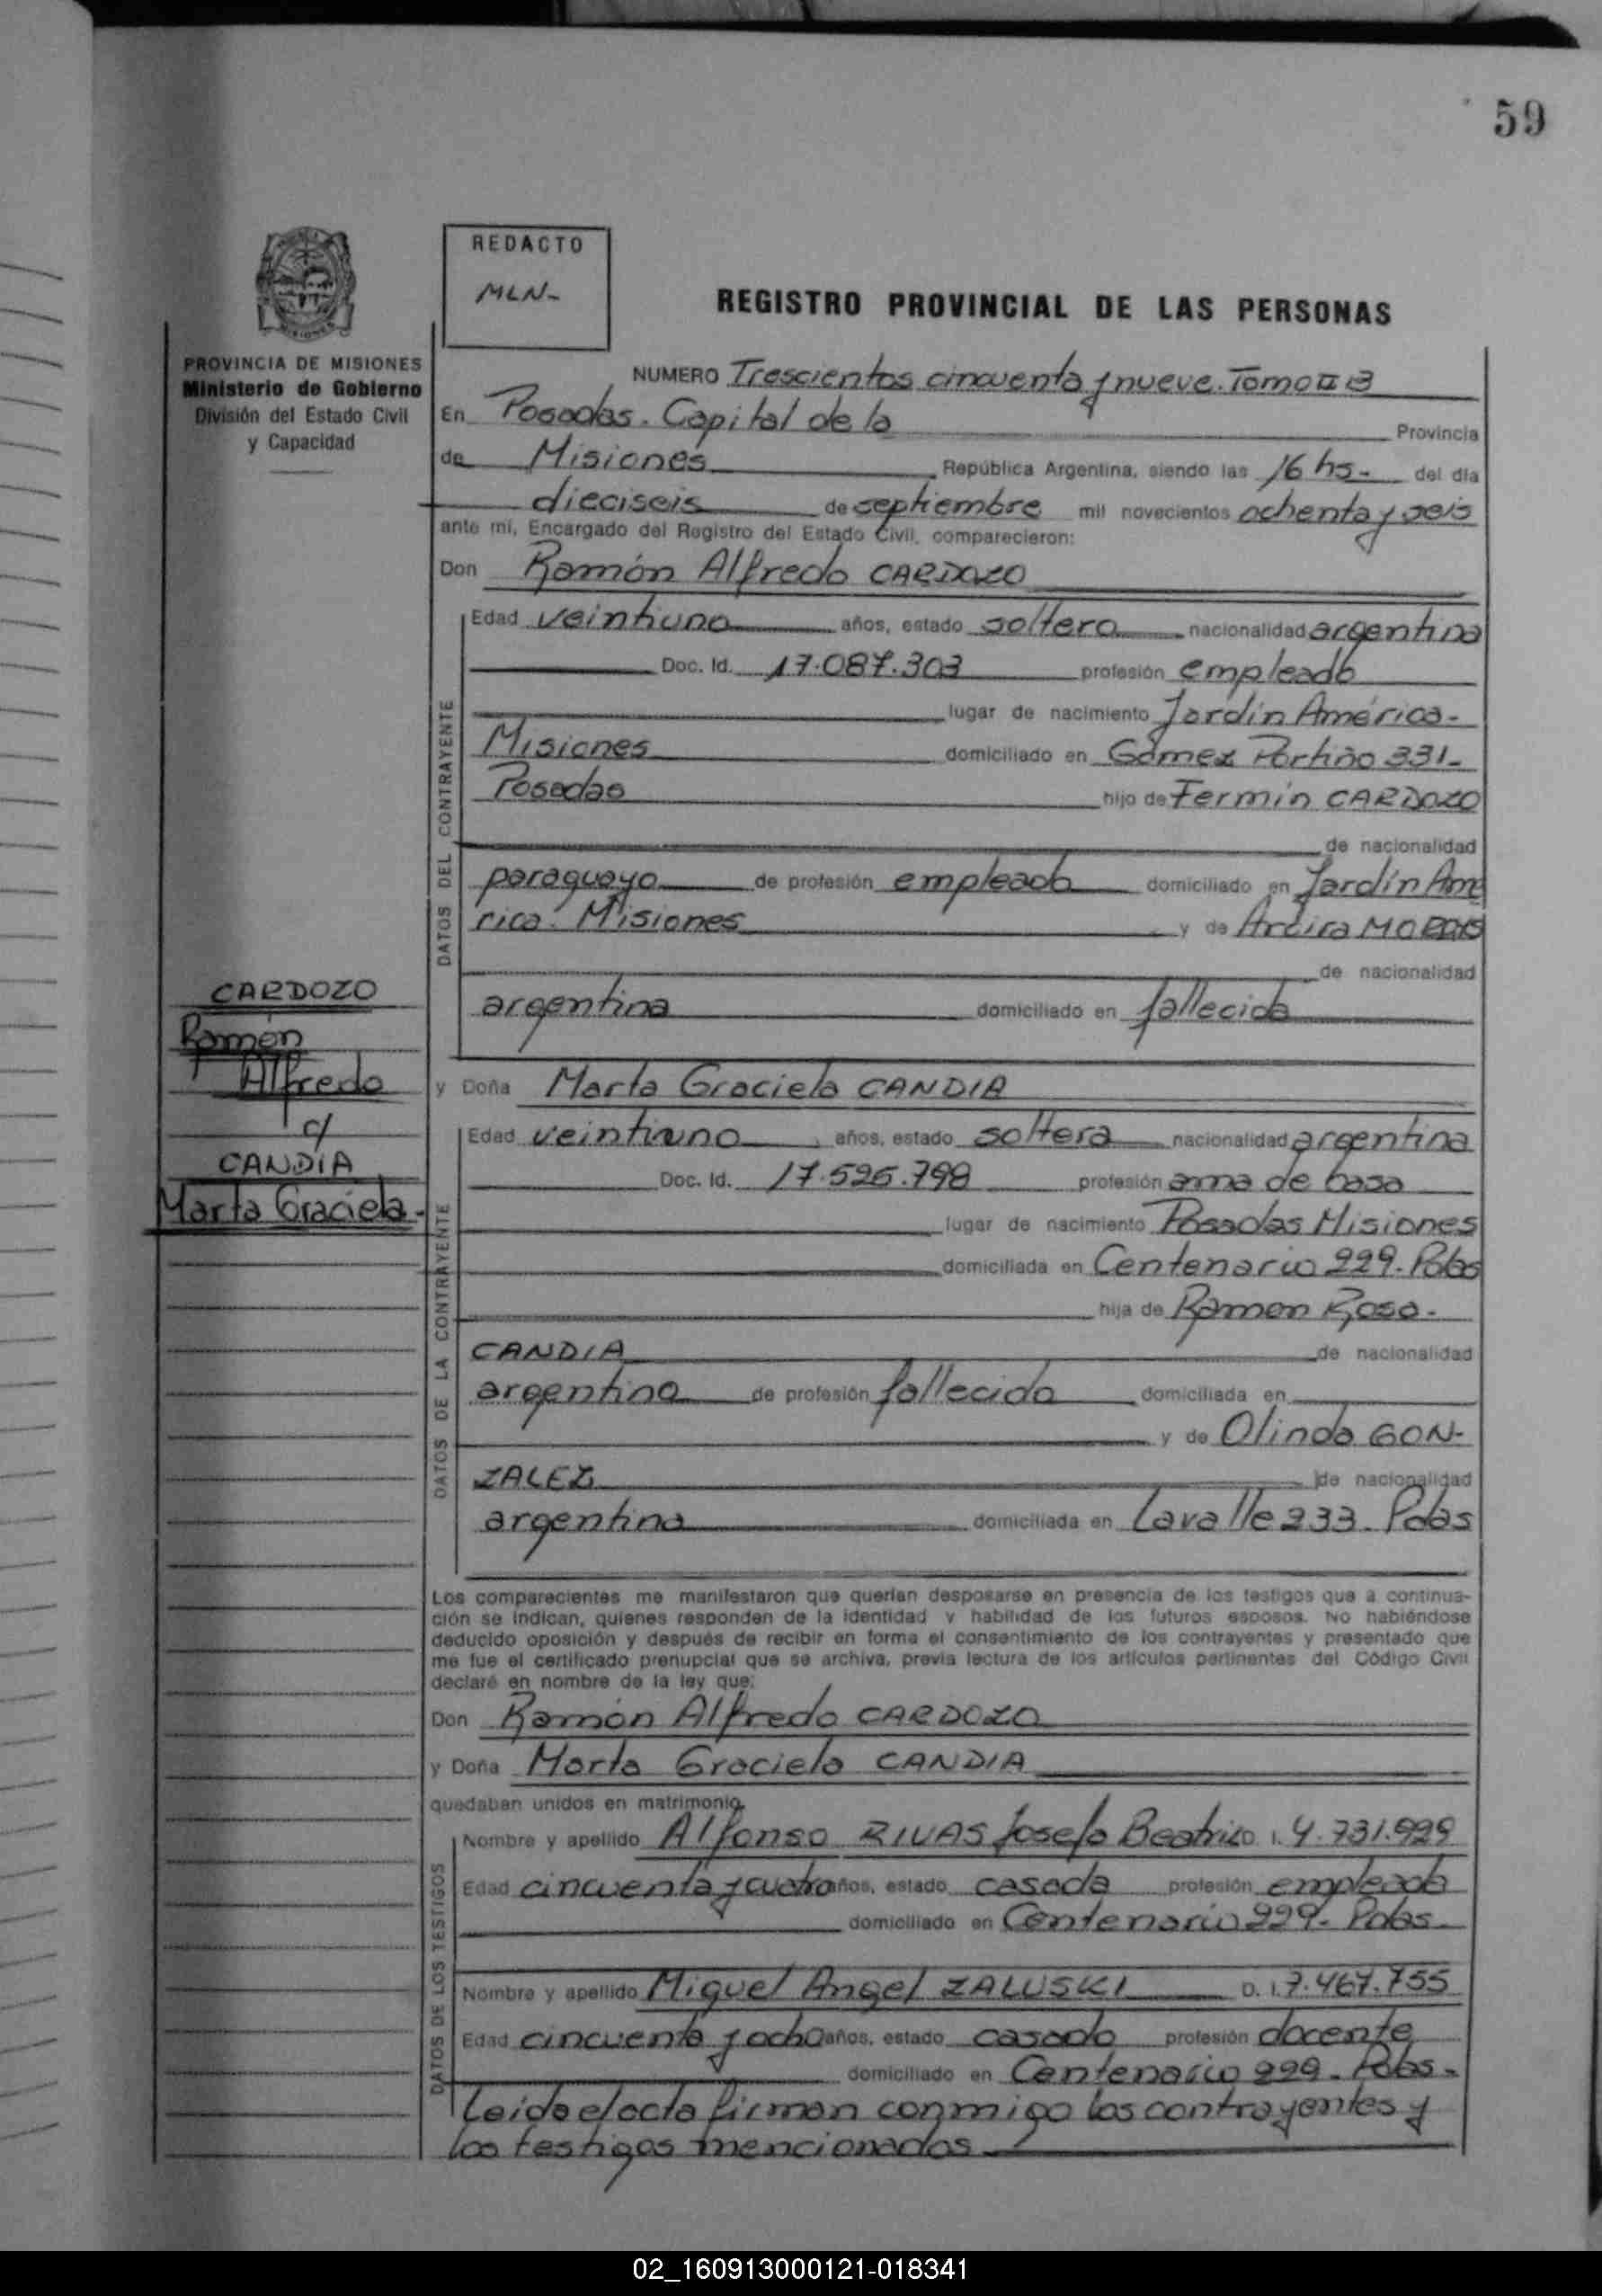 59
REDACTO
MLN-
REGISTRO PROVINCIAL DE LAS PERSONAS
PROVINCIA DE MISIONES
Ministerio de Gobierno
División del Estado Civil
y Capacidad
NUMERO Trescientos cincuenta y nueve. Tomo II B
En Posadas. Capital de la Provincia
de Misiones República Argentina, siendo las 16 hs- del día
dieciseis de septiembre mil novecientos ochenta y seis
ante mí, Encargado del Registro del Estado Civil, comparecieron:
Don Ramón Alfredo CARDOZO
DATOS DEL CONTRAYENTE
Edad veintiuno años, estado soltero nacionalidad argentina
Doc. Id. 17.087.303 profesión empleado
lugar de nacimiento Jardín América-
Misiones domiciliado en Gómez Portiño 331-
Posadas hijo de Fermín CARDOZO
de nacionalidad
paraguayo de profesión empleado domiciliado en Jardín Amé
rica. Misiones y de
de nacionalidad
argentina domiciliado en fallecida
CARDOZO
Ramón
Alfredo
c/
CANDIA
Marta Graciela-
y Doña Marta Graciela CANDIA
DATOS DE LA CONTRAYENTE
Edad veintiuno años, estado soltera nacionalidad argentina
Doc. Id. 17.526.798 profesión ama de casa
lugar de nacimiento Posadas Misiones
domiciliada en Centenario 229- Pdas
hija de Ramon Rosa-
CANDIA de nacionalidad
argentino de profesión fallecido domiciliada en
y de Olinda GON-
ZALEZ de nacionalidad
argentina domiciliada en Lavalle 233. Pdas
Los comparecientes me manifestaron que querían desposarse en presencia de los testigos que a continua-
ción se indican, quienes responden de la identidad y habilidad de los futuros esposos. No habiéndose
deducido oposición y después de recibir en forma el consentimiento de los contrayentes y presentado que
me fue el certificado prenupcial que se archiva, previa lectura de los artículos pertinentes del Código Civil
declaré en nombre de la ley que:
Don Ramón Alfredo CARDOZO
y Doña Marta Graciela CANDIA
quedaban unidos en matrimonio
DATOS DE LOS TESTIGOS
Nombre y apellido Alfonso RIVAS Josefa Beatriz D. I. 4.731.929
Edad cincuenta y cuatro años, estado casada profesión empleada
domiciliado en Centenario 229- Pdas-
Nombre y apellido Miguel Angel ZALUSKI D. I. 7.467.755
Edad cincuenta y ocho años, estado casado profesión docente
domiciliado en Centenario 229- Pdas-
Leída el acta firman conmigo los contrayentes y
los testigos mencionados
02_160913000121-018341